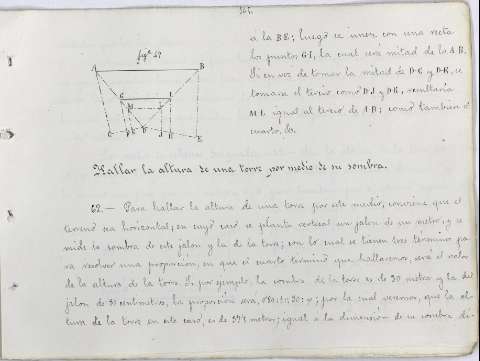 figª 47
A B
G I
M L
C D E
a la BE; luego se unen con una recta
los puntos G I, la cual será mitad de la A B.
Si en vez de tomar la mitad de D G y D E, se
tomara el tercio como D J y D K, resultaria
M L igual al tercio de A B; como tambien el
cuarto, &.
Hallar la altura de una torre por medio de su sombra.
62.— Para hallar la altura de una torre por este medio, conviene que el
terreno sea horizontal; en cuyo caso se planta vertical un jalon de un metro, y se
mide la sombra de este jalon y la de la torre; con lo cual se tienen tres terminos pa
ra resolver una proporcion, en que el cuarto termino que hallaremos, será el valor
de la altura de la torre. Si por ejemplo, la sombra de la torre es de 30 metros y la del
jalon de 80 centimetros, la proporcion será, 0'80:1::30:x; por la cual veremos, que la al-
tura de la torre en este caso, es de 37'5 metros; igual a la dimension de su sombra di-